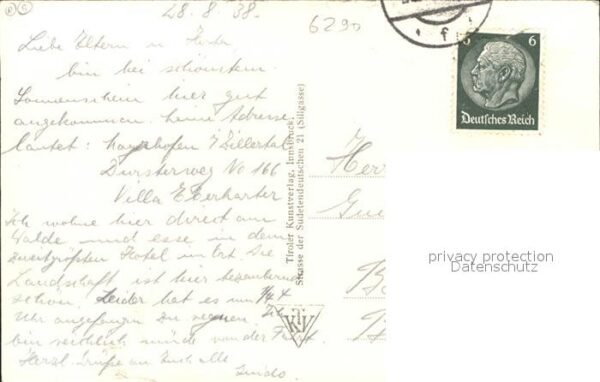 28.8.38.
6290
Liebe Eltern u.
bin bei schönstem
Sonnenschein hier gut
angekommen. Meine Adresse
lautet: Mayrhofen i/Zillertal
Dursterweg No 166
Villa Eberharter
Ich wohne hier direkt am
Walde und esse in dem
zweitgrößten Hotel im Ort. Die
Landschaft ist hier bezaubernd
schön. Leider hat es um 1/4 4
Uhr angefangen zu regnen. Ich
bin reichlich müde von der
Herzl. Grüße an Euch alle
Guido.
Tiroler Kunstverlag, Innsbruck,
Strasse der Sudetendeutschen 21 (Sillgasse)
TKV
Herr
Gu
f
6 6
Deutsches Reich
privacy protection
Datenschutz